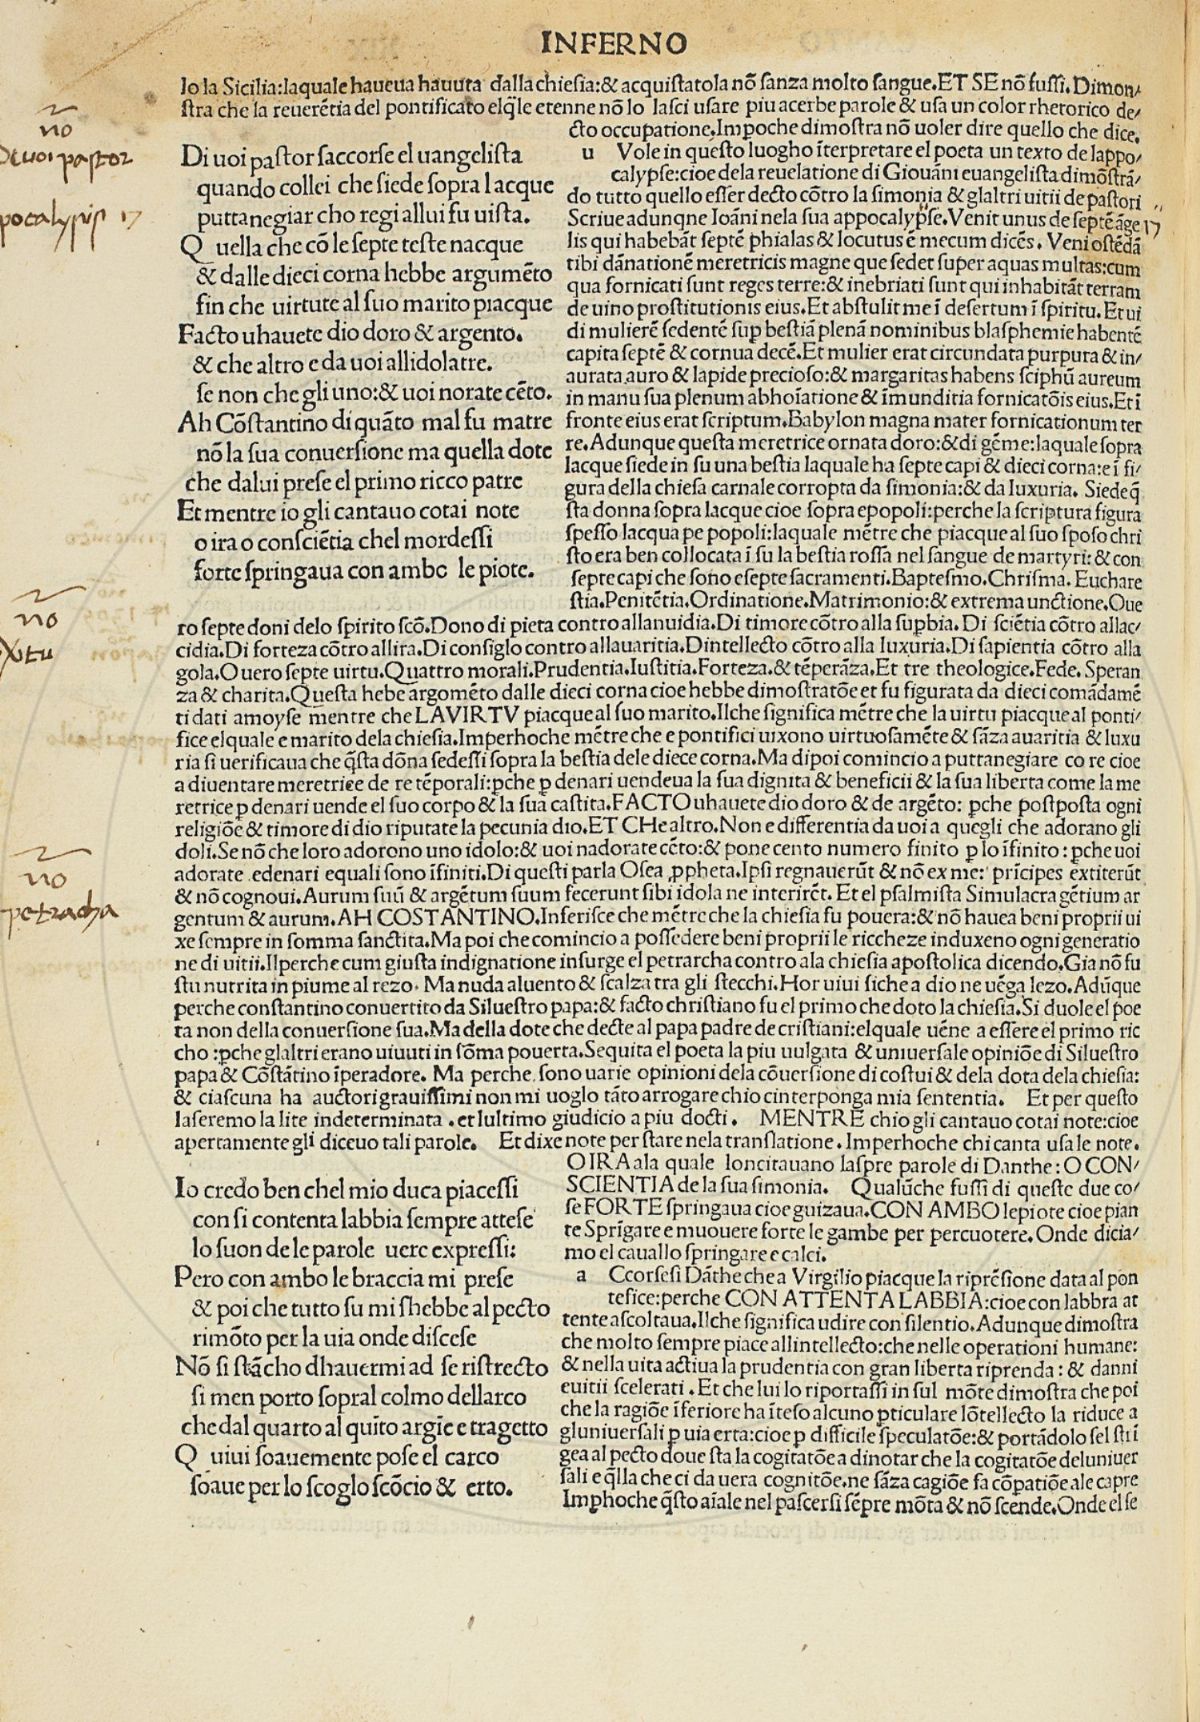 INFERNO
lo la Sicilia:laquale haueua hauuta dalla chiesia:& acquistatola nõ sanza molto sangue.ET SE nõ fussi.Dimon/
stra che la reuerẽtia del pontificato elq̃le etenne nõ lo lasci usare piu acerbe parole & usa un color rhetorico de/
cto occupatione.Impoche dimostra nõ uoler dire quello che dice.
no
De uoi pastor
apocalypsis 17
Di uoi pastor saccorse el uangelista
quando collei che siede sopra lacque
puttanegiar cho regi allui fu uista.
Q uella che cõ le septe teste nacque
& dalle dieci corna hebbe argumẽto
fin che uirtute al suo marito piacque
Facto uhauete dio doro & argento.
& che altro e da uoi allidolatre.
se non che gli uno:& uoi norate cẽto.
Ah Cõstantino di quãto mal fu matre
nõ la sua conuersione ma quella dote
che dalui prese el primo ricco patre
Et mentre io gli cantauo cotai note
o ira o consciẽtia chel mordessi
forte springaua con ambo le piote.
u Vole in questo luogho ĩterpretare el poeta un texto de lappo/
calypse:cioe dela reuelatione di Giouãni euangelista dimõstrã/
do tutto quello esser decto cõtro la simonia & glaltri uitii de pastori
Scriue adunqne Ioãni nela sua appocalypse.Venit unus de septẽ ãge
17
lis qui habebãt septẽ phialas & locutus ẽ mecum dicẽs.Veni ostẽdã
tibi dãnationẽ meretricis magne que sedet super aquas multas:cum
qua fornicati sunt reges terre:& inebriati sunt qui inhabitãt terram
de uino prostitutionis eius.Et abstulit me ĩ desertum ĩ spiritu.Et ui
di mulierẽ sedentẽ sup bestiã plenã nominibus blasphemie habentẽ
capita septẽ & cornua decẽ.Et mulier erat circundata purpura & in/
aurata auro & lapide precioso:& margaritas habens sciphũ aureum
in manu sua plenum abhoĩatione & ĩmunditia fornicatõis eius.Et ĩ
fronte eius erat scriptum.Babylon magna mater fornicationum ter
re.Adunque questa meretrice ornata doro:& di gẽme:laquale sopra
lacque siede in su una bestia laquale ha septe capi & dieci corna:e ĩ fi/
gura della chiesa carnale corropta da simonia:& da luxuria. Siede q̃
sta donna sopra lacque cioe sopra epopoli:perche la scriptura figura
spesso lacqua pe popoli:laquale mẽtre che piacque al suo sposo chri
sto era ben collocata ĩ su la bestia rossa nel sangue de martyri:& con
septe capi che sono e septe sacramenti.Baptesmo.Chrisma. Euchare
stia.Penitẽtia.Ordinatione.Matrimonio:& extrema unctione.Oue
no
Xtu
ro septe doni delo spirito scõ.Dono di pieta contro allanuidia.Di timore cõtro alla supbia. Di sciẽtia cõtro allac/
cidia.Di forteza cõtro allira.Di consiglo contro allauaritia.Dintellecto cõtro alla luxuria.Di sapientia cõtro alla
gola.O uero septe uirtu.Quattro morali.Prudentia.Iustitia.Forteza.& tẽperãza.Et tre theologice.Fede.Speran
za & charita.Questa hebe argomẽto dalle dieci corna cioe hebbe dimostratõe et fu figurata da dieci comãdamẽ
ti dati amoyse mentre che LAVIRTV piacque al suo marito.Ilche significa mẽtre che la uirtu piacque al ponti/
fice elquale e marito dela chiesia.Imperhoche mẽtre che e pontifici uixono uirtuosamẽte & sãza auaritia & luxu
ria si uerificaua che q̃sta dõna sedessi sopra la bestia dele diece corna.Ma dipoi comincio a puttanegiare co re cioe
a diuentare meretrice de re tẽporali:pche p denari uendeua la sua dignita & beneficii & la sua liberta come la me
retrice p denari uende el suo corpo & la sua castita.FACTO uhauete dio doro & de argẽto: pche postposta ogni
religiõe & timore di dio riputate la pecunia dio.ET CHe altro.Non e differentia da uoi a quegli che adorano gli
doli.Se nõ che loro adorono uno idolo:& uoi nadorate cẽto:& pone cento numero finito p lo ĩfinito:pche uoi
adorate edenari equali sono ĩfiniti.Di questi parla Osea ppheta.Ipsi regnauerũt & nõ ex me: prĩcipes extiterũt
no
petracha
& nõ cognoui.Aurum suũ & argẽtum suum fecerunt sibi idola ne interirẽt. Et el psalmista Simulacra gẽtium ar
gentum & aurum.AH COSTANTINO.Inferisce che mẽtre che la chiesia fu pouera:& nõ hauea beni proprii ui
xe sempre in somma sanctita.Ma poi che comincio a possedere beni proprii le riccheze induxeno ogni generatio
ne di uitii.Ilperche cum giusta indignatione insurge el petrarcha contro ala chiesia apostolica dicendo.Gia nõ fu
stu nutrita in piume al rezo. Ma nuda aluento & scalza tra gli stecchi.Hor uiui siche a dio ne uẽga lezo.Adũque
perche constantino conuertito da Siluestro papa:& facto christiano fu el primo che doto la chiesia.Si duole el poe
ta non della conuersione sua.Ma della dote che decte al papa padre de cristiani:elquale uẽne a essere el primo ric
cho :pche glaltri erano uiuuti in sõma pouerta.Sequita el poeta la piu uulgata & uniuersale opiniõe di Siluestro
papa & Cõstãtino ĩperadore. Ma perche sono uarie opinioni dela cõuersione di costui & dela dota dela chiesia:
& ciascuna ha auctori grauissimi non mi uoglo tãto arrogare chio cinterponga mia sententia. Et per questo
laseremo la lite indeterminata .et lultimo giudicio a piu docti. MENTRE chio gli cantauo cotai note:cioe
apertamente gli diceuo tali parole. Et dixe note per stare nela translatione.Imperhoche chi canta usa le note.
O IRA ala quale loncitauano laspre parole di Danthe:O CON/
SCIENTIA de la sua simonia. Qualũche fussi di queste due co/
se FORTE springaua cioe guizaua.CON AMBO le piote cioe pian
te Sprĩgare e muouere forte le gambe per percuotere.Onde dicia/
mo el cauallo springare e calci.
Io credo ben chel mio duca piacessi
con si contenta labbia sempre attese
lo suon de le parole uere expressi:
Pero con ambo le braccia mi prese
& poi che tutto su mi shebbe al pecto
rimõto per la uia onde discese
Nõ si stãcho dhauermi ad se ristrecto
si men porto sopral colmo dellarco
che dal quarto al quĩto argĩe e tragetto
Q uiui soauemente pose el carco
soaue per lo scoglo scõcio & erto.
a Ccorsesi Dãthe che a Virgilio piacque la riprẽsione data al pon
tefice:perche CON ATTENTA LABBIA:cioe con labbra at
tente ascoltaua.Ilche significa udire con silentio.Adunque dimostra
che molto sempre piace allintellecto:che nelle operationi humane:
& nella uita actiua la prudentia con gran liberta riprenda: & danni
e uitii scelerati.Et che lui lo riportassi in sul mõte dimostra che poi
che la ragiõe ĩferiore ha ĩteso alcuno pticulare lõtellecto la riduce a
gluniuersali p uia erta:cioe p difficile speculatõe:& portãdolo sel strĩ
gea al pecto doue sta la cogitatõe a dinotar che la cogitatõe deluniuer
sali e q̃lla che ci da uera cognitõe.ne sãza cagiõe fa cõpatiõe ale capre
Imphoche q̃sto aĩale nel pascersi sẽpre mõta & nõ scende.Onde el se